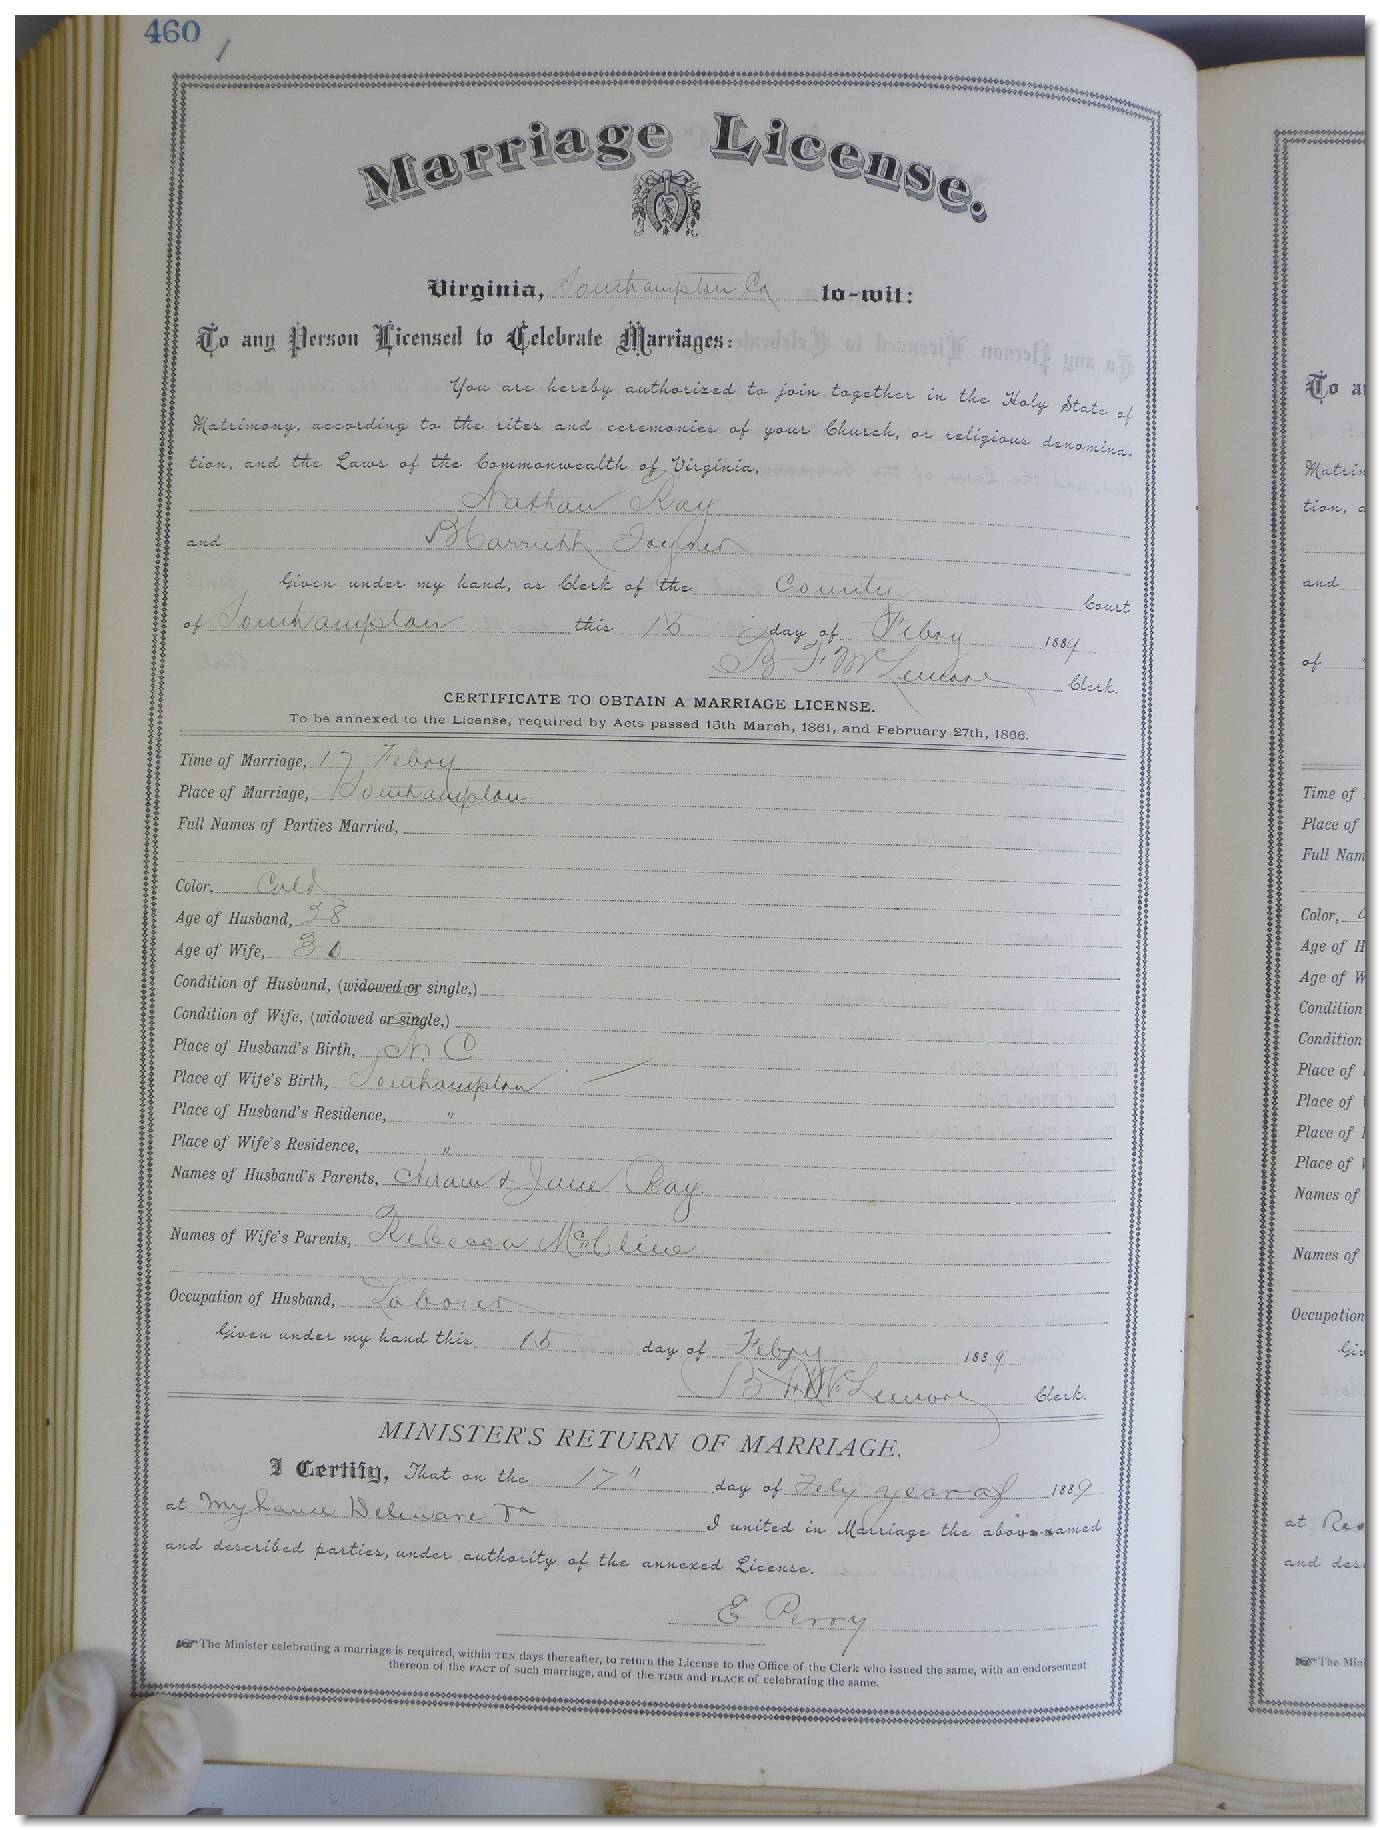 460
Marriage License.
Virginia, Southampton Co to-wit:
To any Person Licensed to Celebrate Marriages:
You are hereby authorized to join together in the Holy State of
Matrimony, according to the rites and ceremonies of your Church, or religious denomina-
tion, and the Laws of the Commonwealth of Virginia,
Nathan Ray
and Joyner
Given under my hand, as Clerk of the County Court
of Southampton this 15 day of Feby 1889
B F McLemore Clerk.
CERTIFICATE TO OBTAIN A MARRIAGE LICENSE.
To be annexed to the License, required by Acts passed 15th March, 1861, and February 27th, 1866.
Time of Marriage, 17 Febry
Place of Marriage, Southampton
Full Names of Parties Married,
Color, Cold
Age of Husband, 28
Age of Wife, 30
Condition of Husband, (widowed or single,)
Condition of Wife, (widowed or single,)
Place of Husband's Birth, N C
Place of Wife's Birth, Southampton
Place of Husband's Residence, "
Place of Wife's Residence, "
Names of Husband's Parents, Adam & Jane Ray
Names of Wife's Parents, Rebecca
Occupation of Husband, Laborer
Given under my hand this 15 day of Febry 1889
B F McLemore Clerk.
MINISTER'S RETURN OF MARRIAGE.
I Certify, That on the 17" day of Feby year of 1889
at Deleware Va I united in Marriage the above-named
and described parties, under authority of the annexed License.
E Perry
The Minister celebrating a marriage is required, within TEN days thereafter, to return the License to the Office of the Clerk who issued the same, with an endorsement
thereon of the FACT of such marriage, and of the TIME and PLACE of celebrating the same.
To a
Matrim
tion,
and
of
Time of
Place of
Full Nam
Color,
Age of H
Age of W
Condition
Condition
Place of
Place of
Place of
Place of
Names of
Names of
Occupation
Giv
at
and des
The Mini